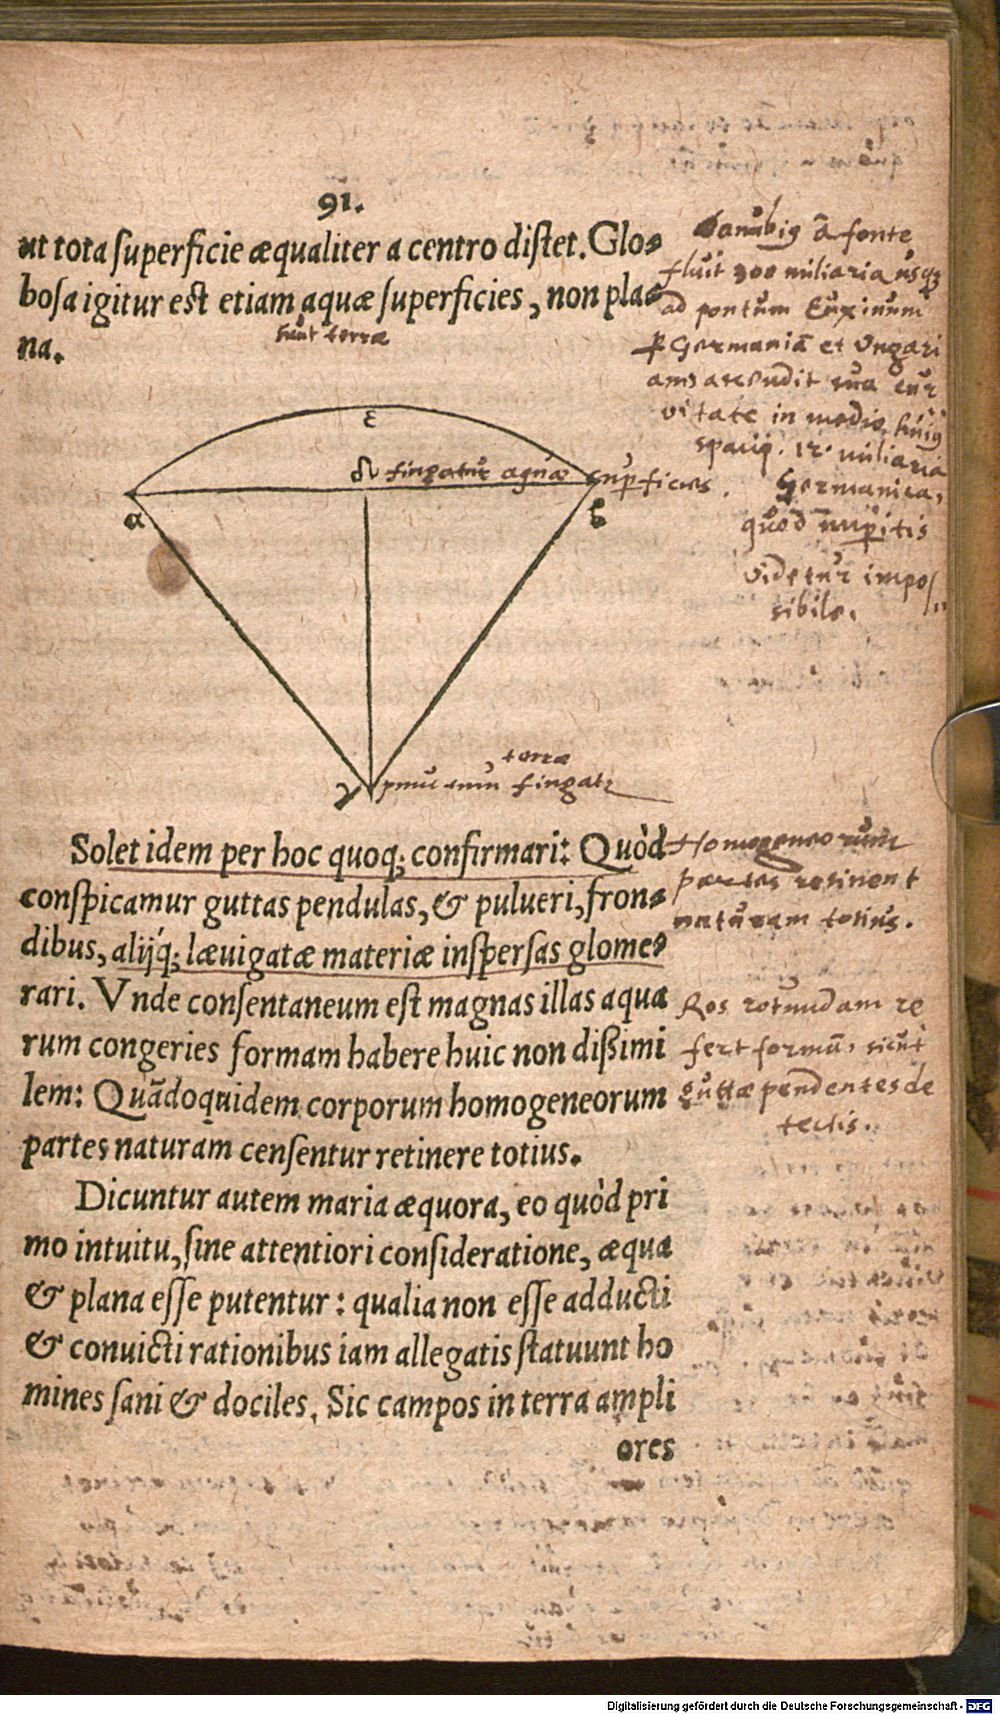 91.
ut tota superficie æqualiter a centro distet. Glo-
bosa igitur est etiam aquæ superficies, non pla-
na.
sicut terræ
Danubiꝰ ā fonte
fluit 300 miliaria usqꝫ
ad pontum Euxinum
ꝑ Germaniā et Ungari
am
vitate in medio huiꝰ
spacij. 12. miliaria
Germanica,
quod
videtur impos
sibile.
ε
δ fingatur aquæ superficies.
α
β
γ
terræ
fingatr
Solet idem per hoc quoq; confirmari: Quòd
conspicamur guttas pendulas, & pulueri, fron-
dibus, alijq́; læuigatæ materiæ inspersas glome-
rari. Vnde consentaneum est magnas illas aqua
rum congeries formam habere huic non dißimi
lem: Quādoquidem corporum homogeneorum
partes naturam censentur retinere totius.
Homogeneorum
partes retinent
naturam totius.
Ros rotundam re
fert formā, sicut
guttæ pendentes de
tectis.
Dicuntur autem maria æquora, eo quòd pri
mo intuitu, sine attentiori consideratione, æqua
& plana esse putentur: qualia non esse adducti
& conuicti rationibus iam allegatis statuunt ho
mines sani & dociles. Sic campos in terra ampli
ores
Digitalisierung gefördert durch die Deutsche Forschungsgemeinschaft - DFG